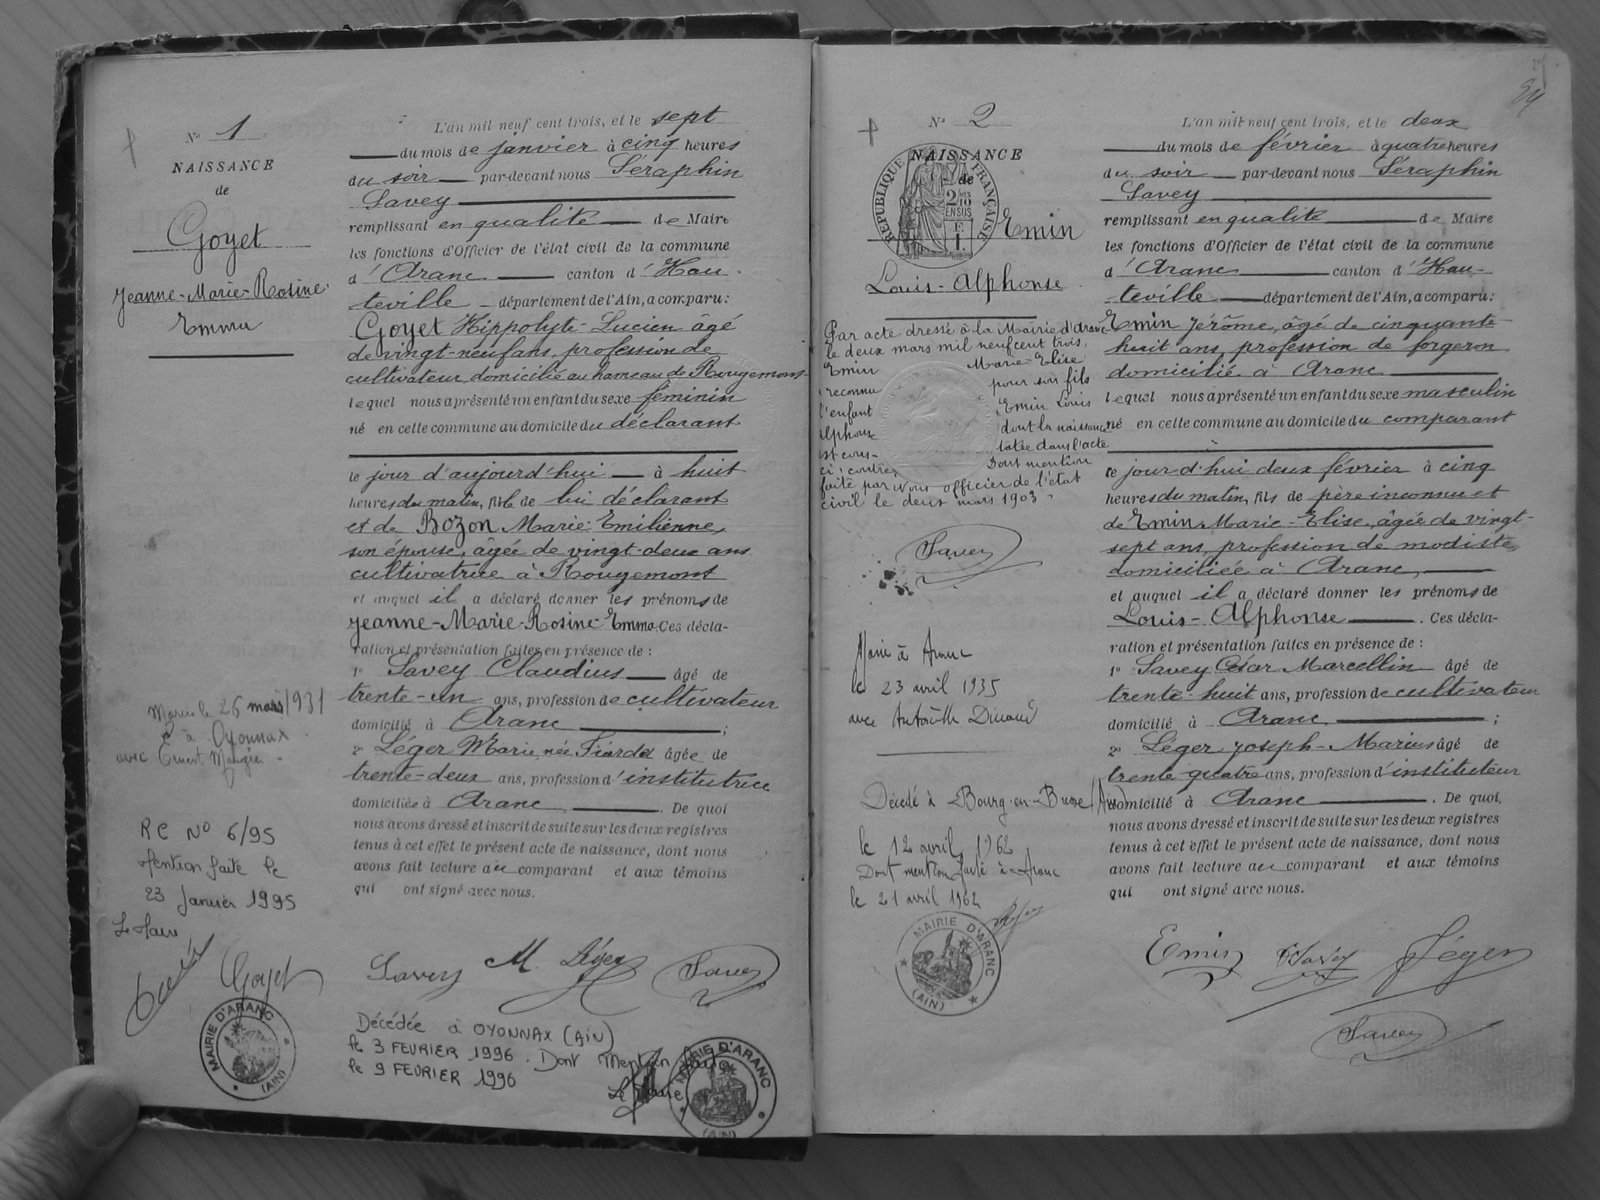 N° 1
NAISSANCE
de
Goyet
Jeanne-Marie-Rosine-
Emma
L'an mil neuf cent trois, et le sept
du mois de janvier à cinq heures
du soir par-devant nous Séraphin
Savey
remplissant en qualité de Maire
les fonctions d'Officier de l'état civil de la commune
d'Aranc canton d'Hau-
teville département de l'Ain, a comparu:
Goyet Hippolyte-Lucien âgé
de vingt-neuf ans, profession de
cultivateur domicilié au hameau de Rougemont
lequel nous a présenté un enfant du sexe féminin
né en cette commune au domicile du déclarant
le jour d'aujourd'hui à huit
heures du matin, fille de lui déclarant
et de Bozon Marie-Emilienne,
son épouse, âgée de vingt-deux ans
cultivatrice à Rougemont
et auquel il a déclaré donner les prénoms de
Jeanne-Marie-Rosine-Emma. Ces décla-
ration et présentation faites en présence de :
1° Savey Claudius âgé de
trente-un ans, profession de cultivateur
domicilié à Aranc ;
2° Léger Marie, née Fiardet âgée de
trente-deux ans, profession d'institutrice
domiciliée à Aranc . De quoi
nous avons dressé et inscrit de suite sur les deux registres
tenus à cet effet le présent acte de naissance, dont nous
avons fait lecture au comparant et aux témoins
qui ont signé avec nous.
Mariée le 26 mars 1931
à Oyonnax
avec Ernest
RC N° 6/95
Mention faite le
23 Janvier 1995
Le Maire
Goyet Savey M. Léger Savey
MAIRIE D'ARANC
(AIN)
Décédée à OYONNAX (AIN)
le 3 FEVRIER 1996. Dont Mention
le 9 FEVRIER 1996
Le Maire
MAIRIE D'ARANC
(AIN)
84
N° 2
NAISSANCE
de
RÉPUBLIQUE FRANÇAISE
2/10
EN SUS
Emin
Louis-Alphonse
Par acte dressé à la Mairie d'Aranc
le deux mars mil neuf cent trois,
Emin Marie-Elise
reconnu pour son fils
l'enfant Emin Louis
Alphonse dont la naissance
est cons- tatée dans l'acte
ci-contre, Dont mention
faite par Nous officier de l'état
civil le deux mars 1903
Savey
Marié à Aranc
le 23 avril 1935
avec
Décédé à Bourg-en-Bresse (Ain)
le 12 avril 1962
Dont mention faite à Aranc
le 21 avril 1962
MAIRIE D'ARANC
(AIN)
L'an mil neuf cent trois, et le deux
du mois de février à quatre heures
du soir par-devant nous Séraphin
Savey
remplissant en qualité de Maire
les fonctions d'Officier de l'état civil de la commune
d'Aranc canton d'Hau-
teville département de l'Ain, a comparu:
Emin Jérôme, âgé de cinquante
huit ans, profession de forgeron
domicilié à Aranc
lequel nous a présenté un enfant du sexe masculin
né en cette commune au domicile du comparant
ce jour-d'hui deux février à cinq
heures du matin, fils de père inconnu et
de Emin Marie-Elise, âgée de vingt-
sept ans, profession de modiste,
domiciliée à Aranc,
et auquel il a déclaré donner les prénoms de
Louis-Alphonse . Ces décla-
ration et présentation faites en présence de :
1° Savey César Marcellin âgé de
trente-huit ans, profession de cultivateur
domicilié à Aranc ;
2° Léger Joseph-Marius âgé de
trente-quatre ans, profession d'instituteur
domicilié à Aranc . De quoi,
nous avons dressé et inscrit de suite sur les deux registres
tenus à cet effet le présent acte de naissance, dont nous
avons fait lecture au comparant et aux témoins
qui ont signé avec nous.
Emin Savey Léger
Savey